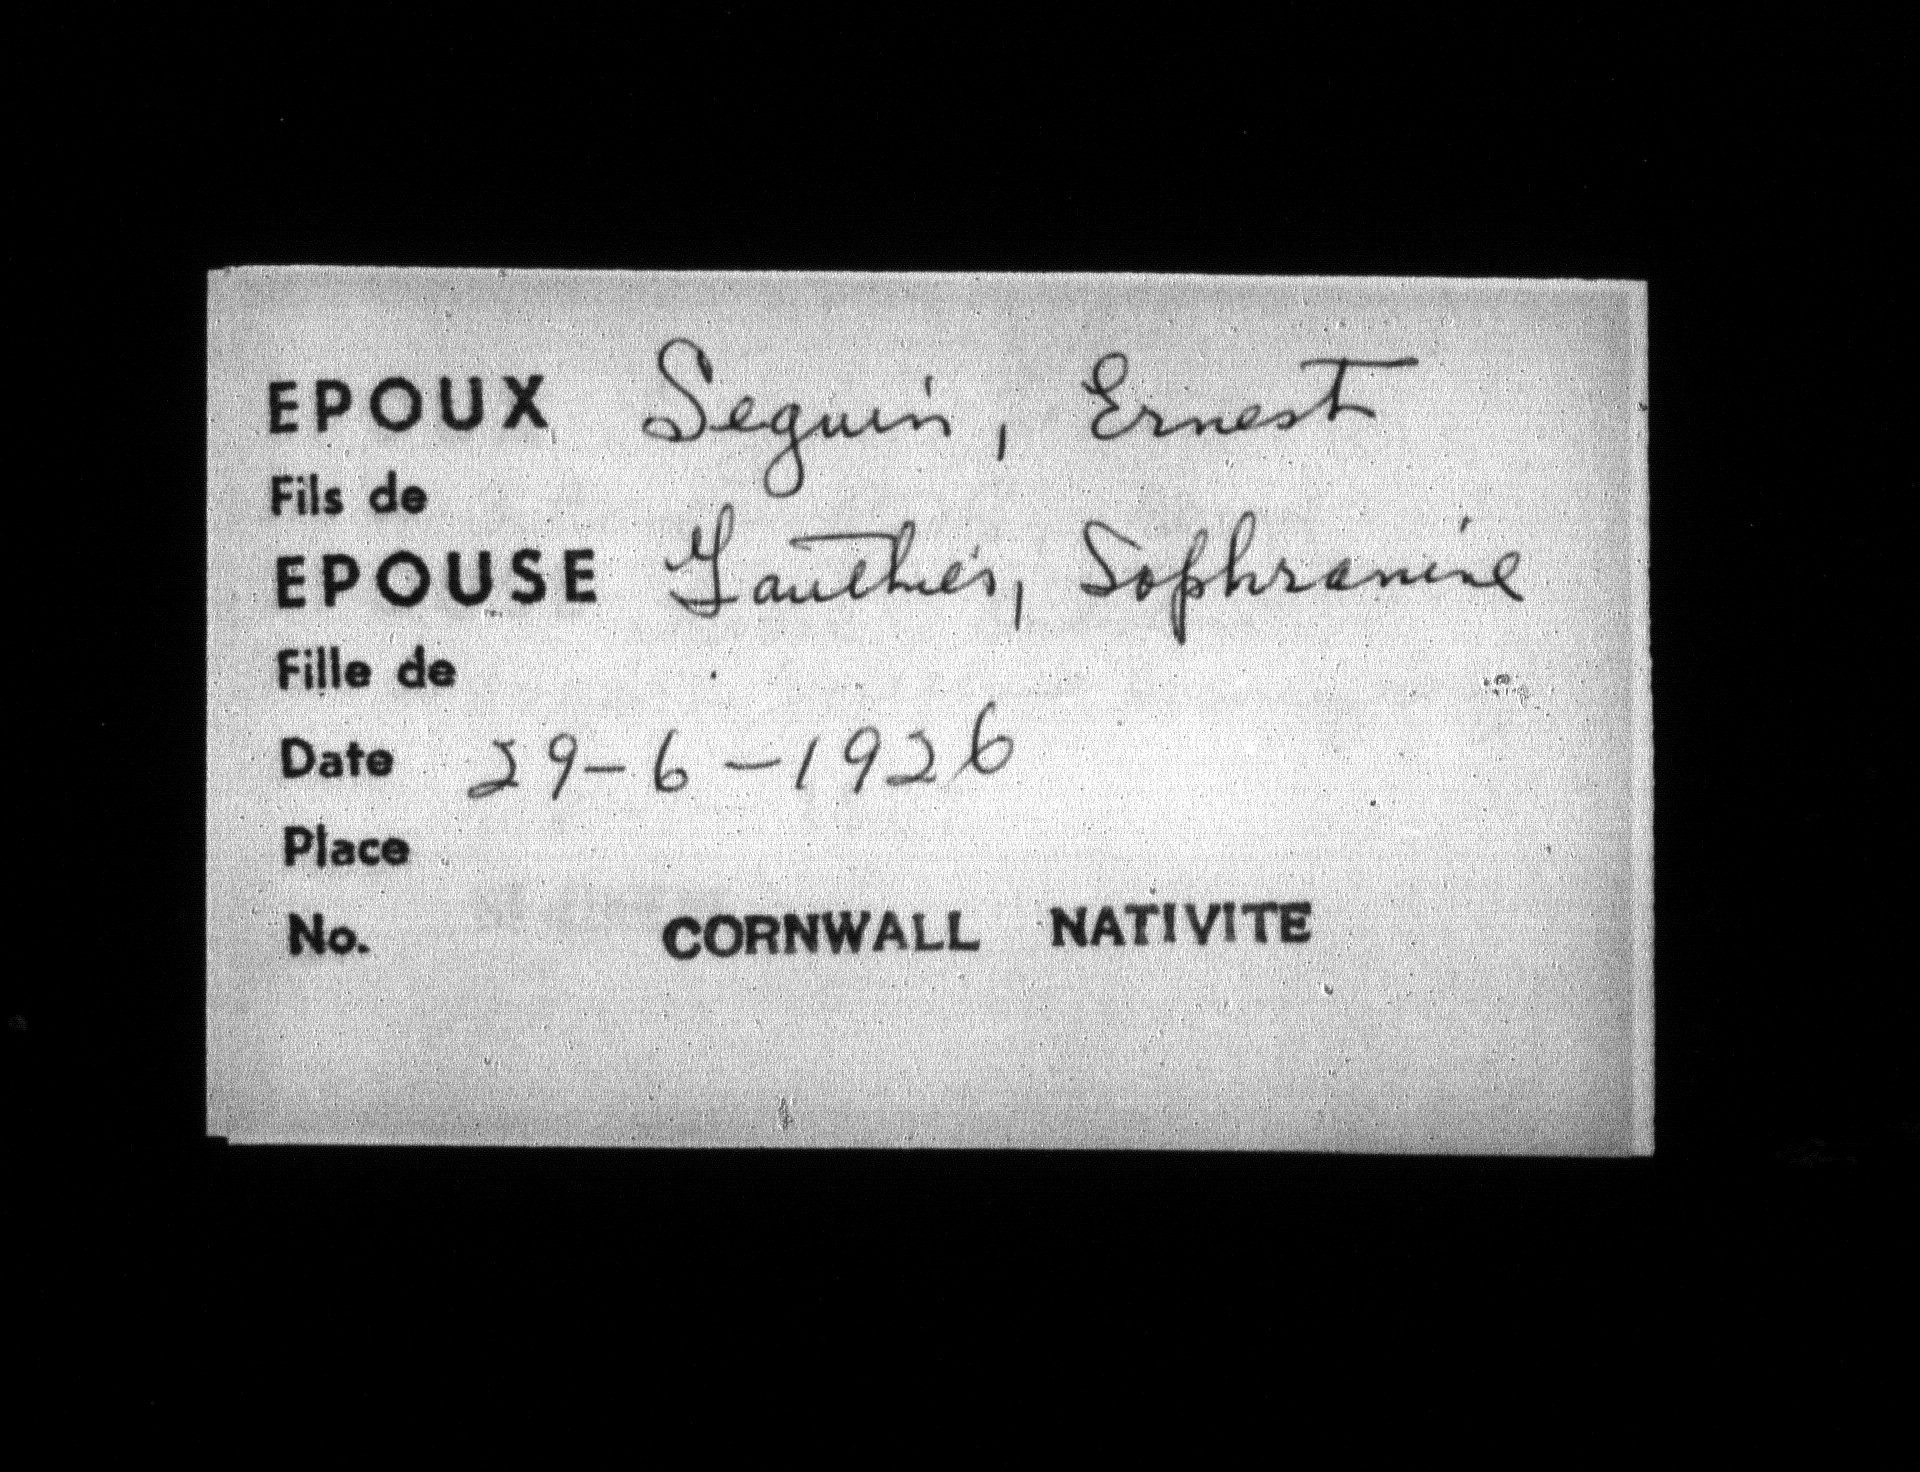 EPOUX Seguin, Ernest
Fils de
EPOUSE Gauthier, Sophranine
Fille de
Date 29-6-1926
Place
No. CORNWALL NATIVITE